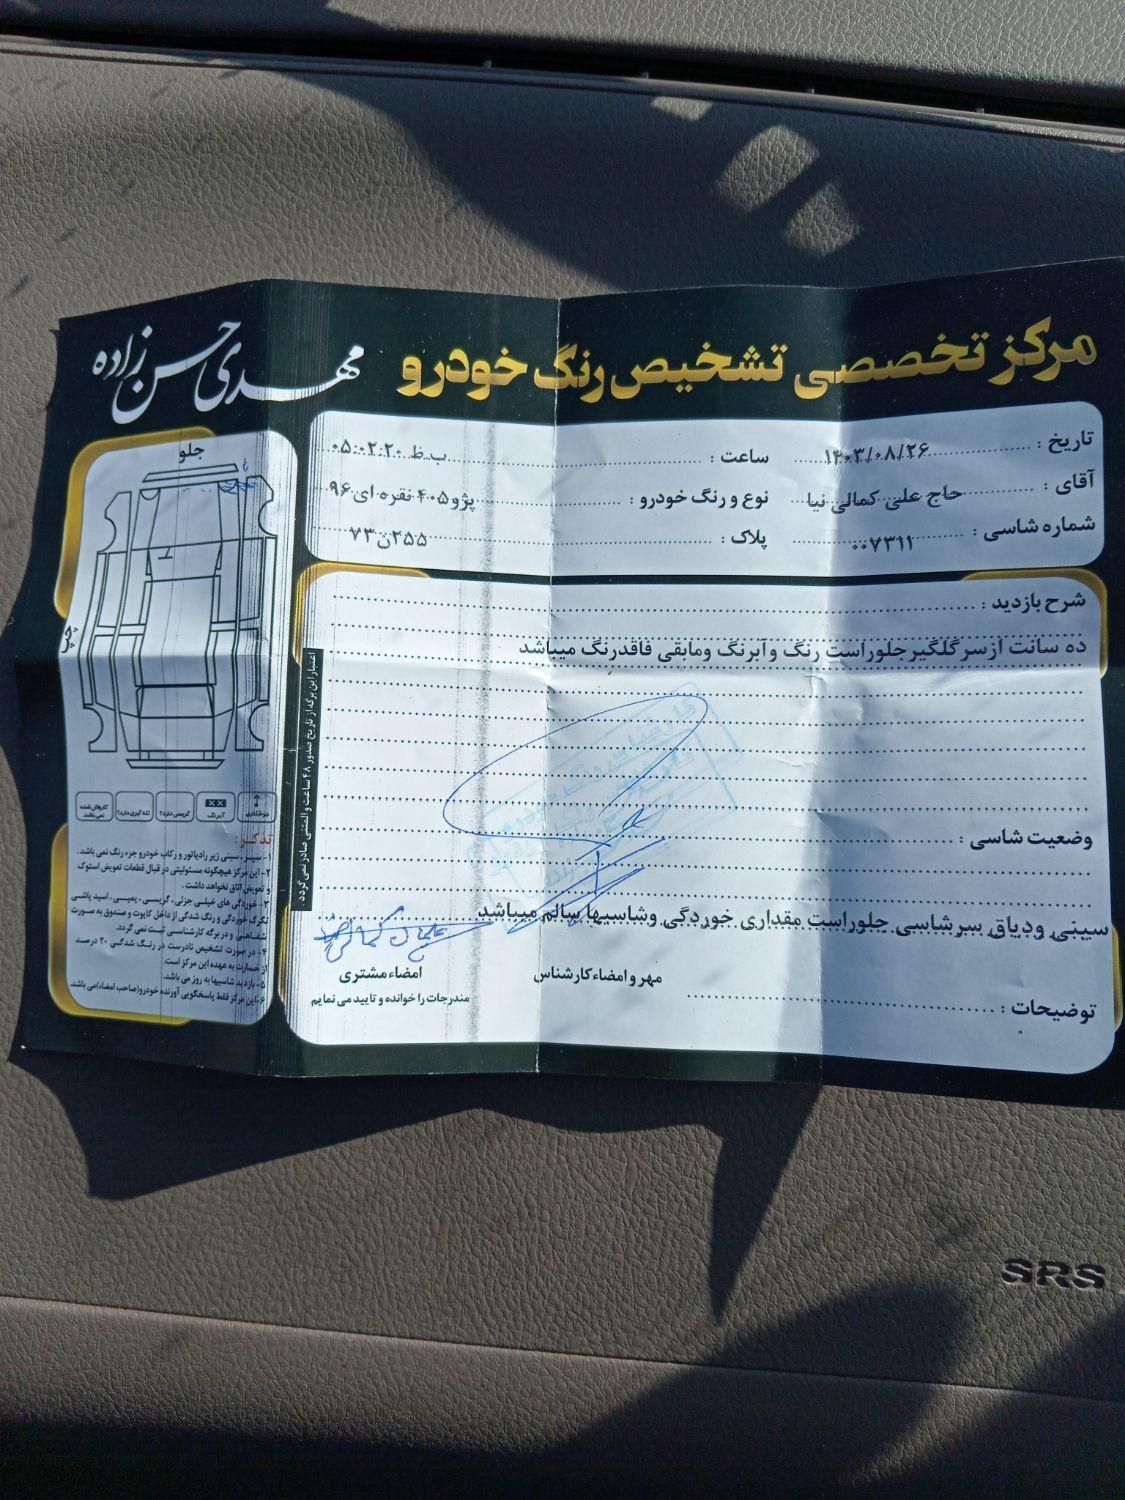 مرکز تخصصی تشخیص رنگ خودرو مهدی حسن زاده
تاریخ : ۱۴۰۳/۰۸/۲۶ ساعت : ۰۵:۰۲:۲۰ ب.ظ
آقای : حاج علی کمالی نیا نوع و رنگ خودرو : پژو ۴۰۵ نقره ای ۹۶
شماره شاسی : ۰۰۷۳۱۱ پلاک : ۲۵۵ن۷۳
شرح بازدید :
ده سانت ازسرگلگیرجلوراست رنگ وآبرنگ ومابقی فاقدرنگ میباشد
وضعیت شاسی :
سینی ودیاق سرشاسی جلوراست مقداری خوردگی وشاسیها سالم میباشد
مهر و امضاء کارشناس
امضاء مشتری
مندرجات را خوانده و تایید می نمایم
توضیحات :
اعتبار این برگه از تاریخ صدور ۴۸ ساعت و المثنی صادر نمی گردد
جلو
چپ
آبرنگ
گریسی دارد؟
لکه گیری دارد؟
کارواش شده نمی باشد
تذکر :
۱- سپر، سینی زیر رادیاتور و رکاب خودرو جزء رنگ نمی باشد.
۲- این مرکز هیچگونه مسئولیتی در قبال قطعات تعویض استوک
و تعویض اتاق نخواهد داشت.
۳- خوردگی های خیلی جزئی، گریسی، پمپی، اسید پاشی
تگرگ خوردگی و رنگ شدگی از داخل کاپوت و صندوق به صورت
شفاهی و در برگه کارشناسی ثبت نمی گردد.
۴- در صورت تشخیص نادرست در رنگ شدگی ۲۰ درصد
از خسارت به عهده این مرکز است.
۵- بازدید شاسیها به روز می باشد.
۶- این مرکز فقط پاسخگویی آورنده خودرو(صاحب امضاء)می باشد.
SRS